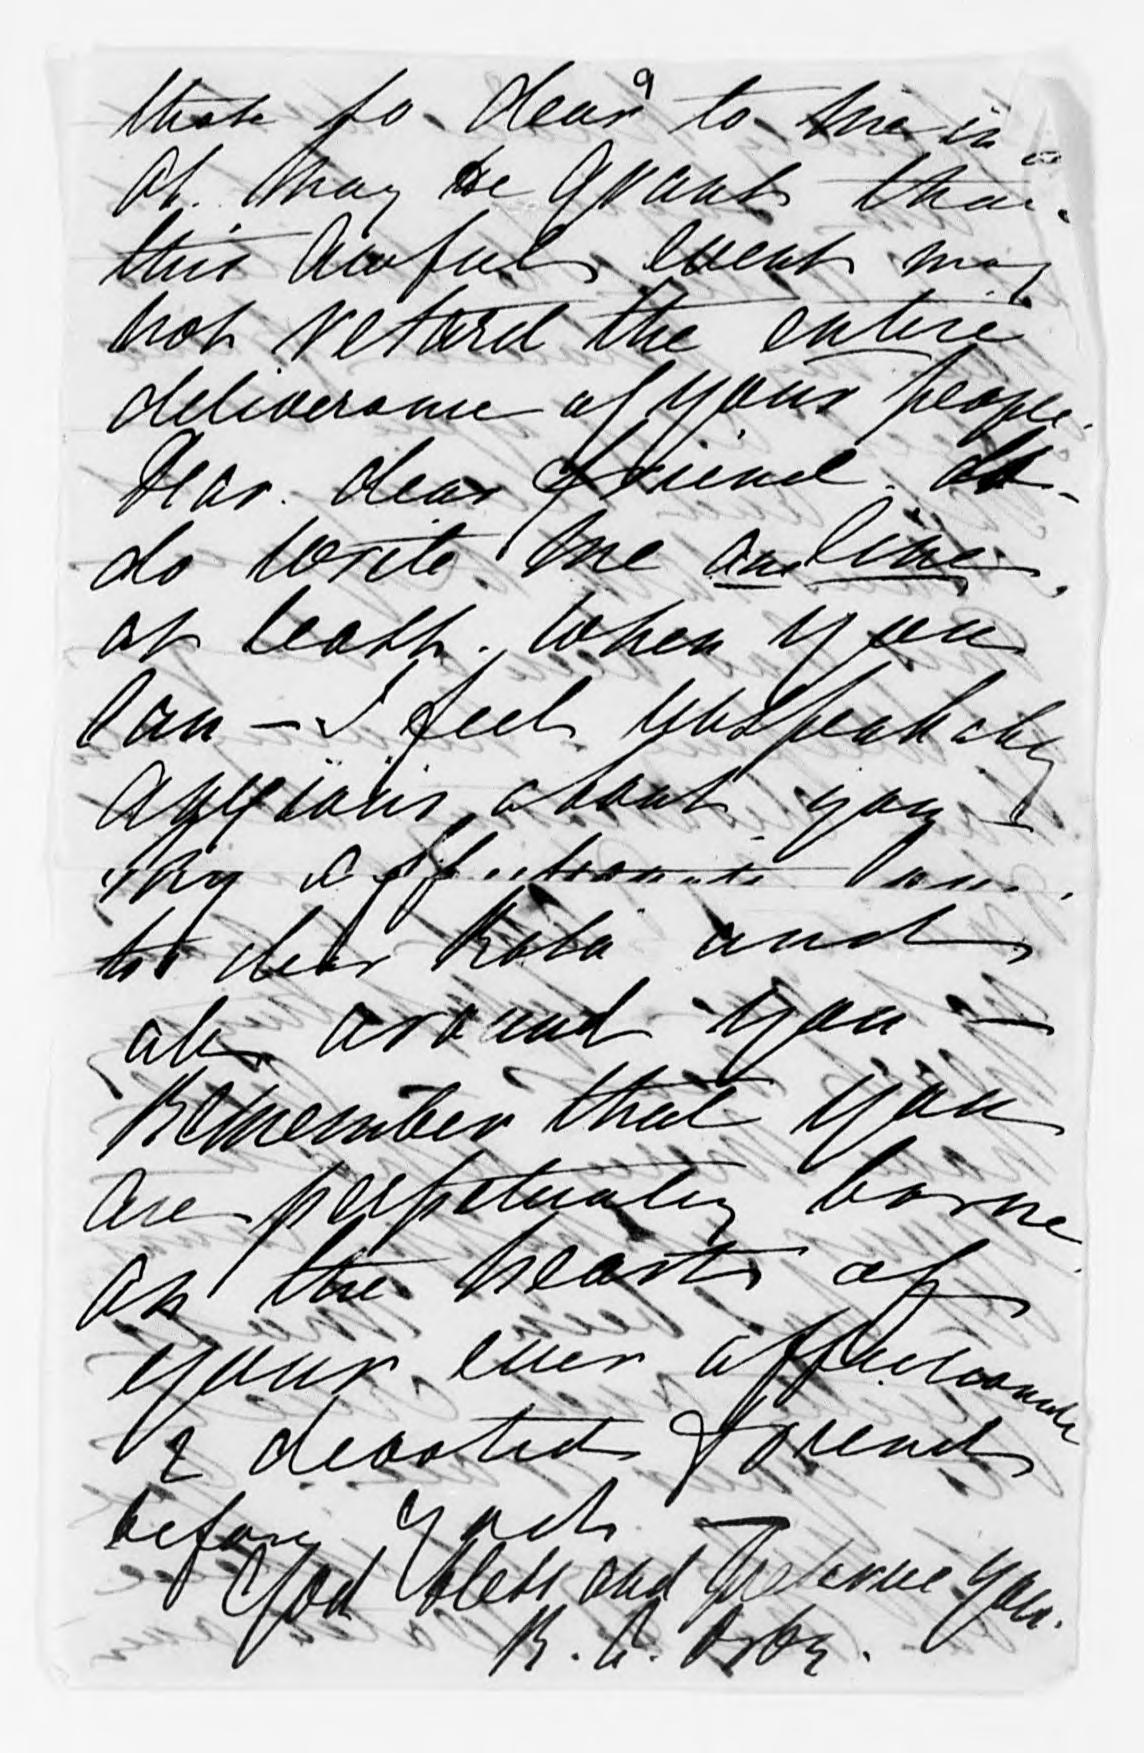 those so dear to me in
it. May He grant that
this awful event may
not retard the entire
deliverance of your people.
Dear dear friend. do -
do write me one line,
at least. when you
can - I feel unspeakably
anxious about you -
My affectionate love
to dear Rosa and
all around you -
Remember that you
are perpetually borne
on the hearts of
your ever affectionate
& devoted friend
before God.
God bless and preserve you.